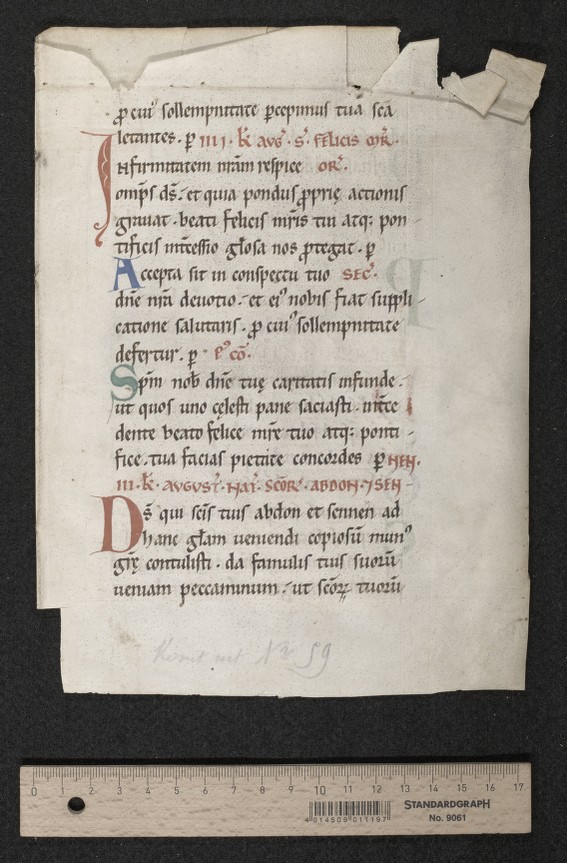 ꝓ cui᷒ sollempnitate ꝑcepimus tua sc̄a
letantes. ꝑ IIII. k̄. AVG᷒. S᷒. FELICIS M̄R᷒.
Infirmitatem nr̄am respice OR᷒.
omp̄s ds̄. et quia pondus ꝓprię actionis
grauat. beati felicis mr̄is tui atq; pon-
tificis int̄cessio gl̄osa nos ꝓtegat. ꝑ
Accepta sit in conspectu tuo SEC᷒.
dn̄e nr̄a deuotio. et ei᷒ nobis fiat suppli-
catione salutaris. ꝓ cui᷒ sollempnitate
defertur. ꝑ P᷒ CŌ.
Sp̄m nob̄ dn̄e tuę caritatis infunde.
ut quos uno cęlesti pane saciasti. int̄ce
dente beato felice mr̄e tuo atq; ponti-
fice. tua facias pietate concordes ꝑ NEN.
III. k̄. AVGVST᷒. NAT᷒. SCŌR᷒. ABDON. ⁊ SEN-
Ds̄ qui sc̄is tuis abdon et sennen ad
hanc gl̄am ueniendi copiosū mun᷒
grę contulisti. da famulis tuis suorū
ueniam peccaminum. ut scōꝝ tuorū
Nr 59
0 1 2 3 4 5 6 7 8 9 10 11 12 13 14 15 16 17
4 014509 011197
STANDARDGRAPH
No. 9061